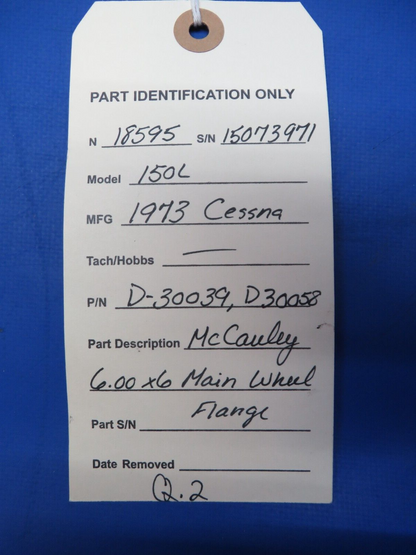 PART IDENTIFICATION ONLY
N 18595 S/N 15073971
Model 150L
MFG 1973 Cessna
Tach/Hobbs —
P/N D-30039, D30058
Part Description McCauley
6.00 x6 Main Wheel
Flange
Part S/N
Date Removed
Q.2